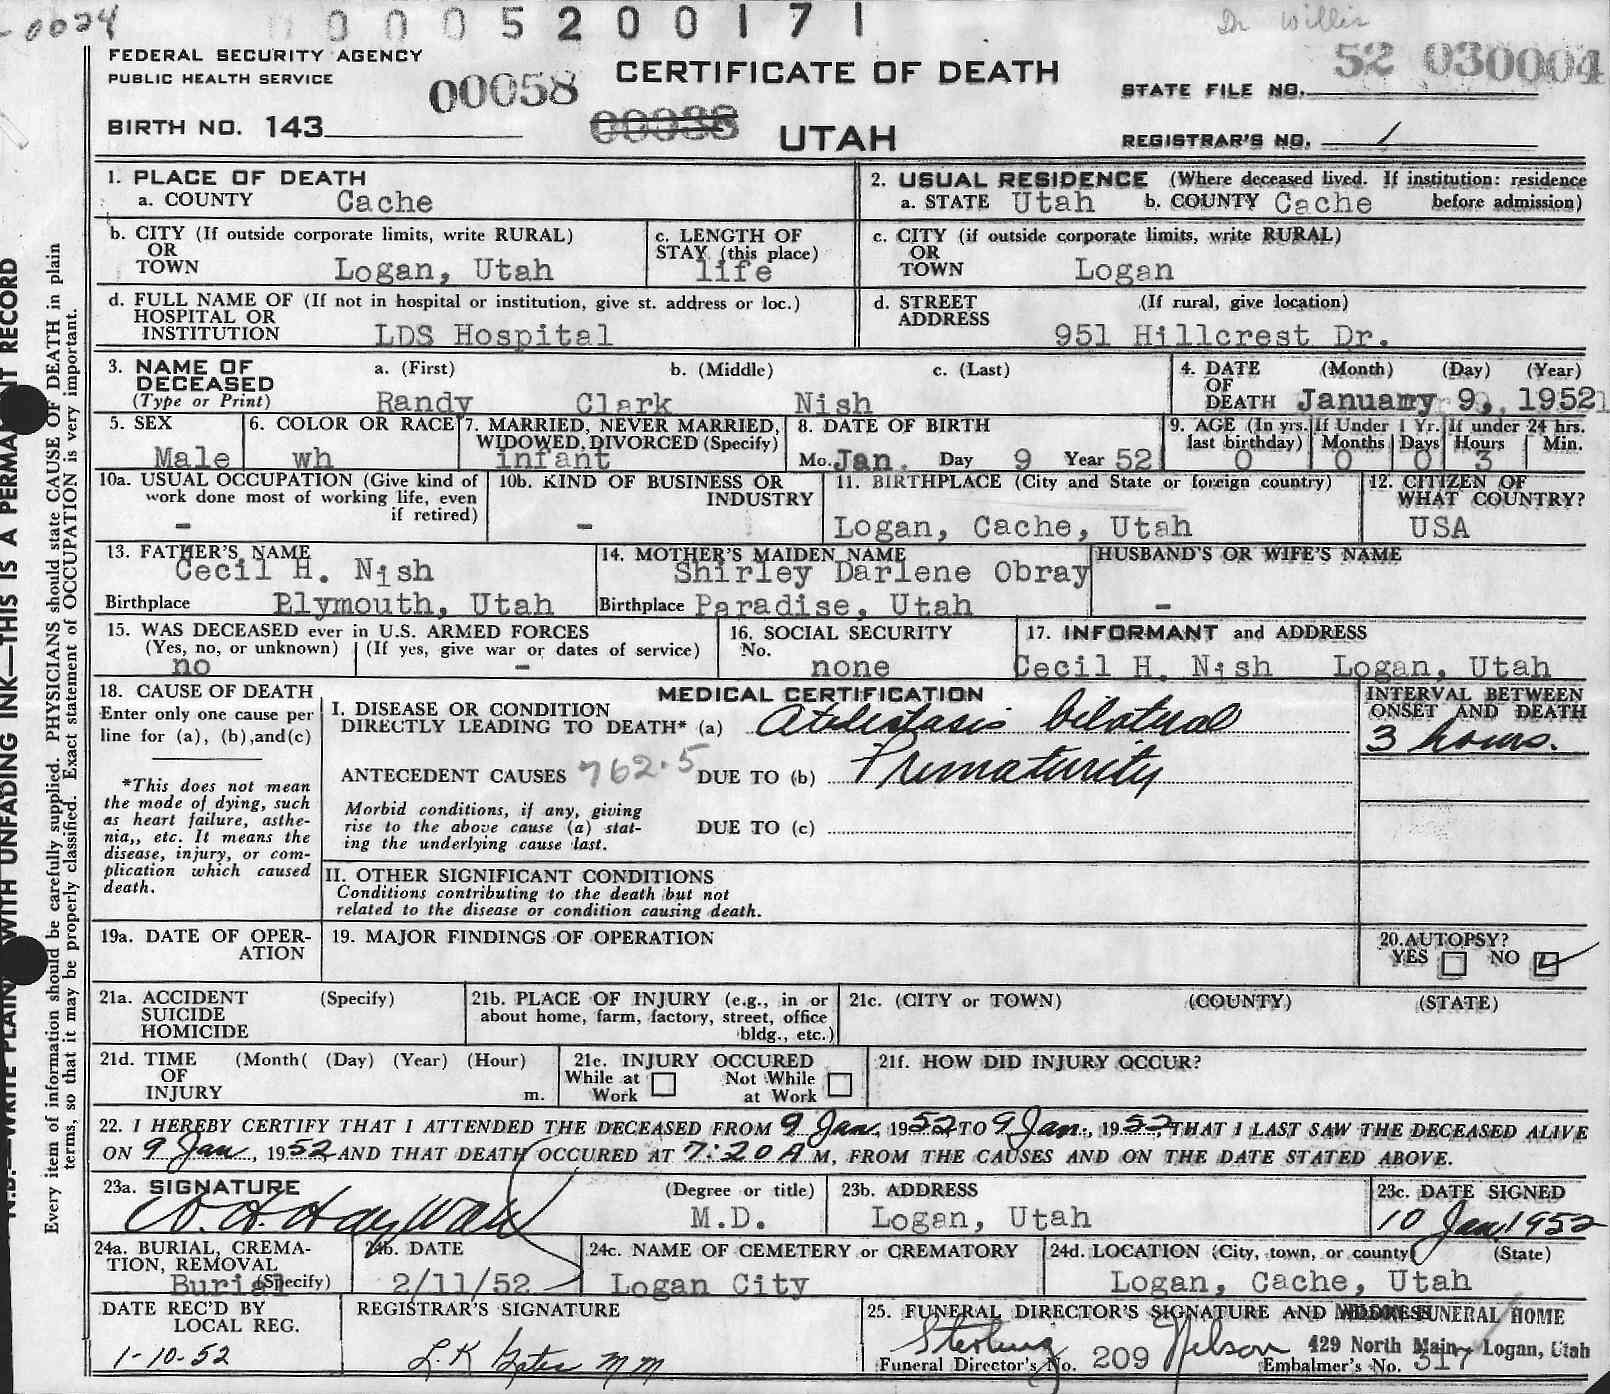 -0024
0005200171
Dr Willis
FEDERAL SECURITY AGENCY
PUBLIC HEALTH SERVICE
00058
CERTIFICATE OF DEATH
52 030004
STATE FILE NO.
BIRTH NO. 143
UTAH
REGISTRAR'S NO. 1
1. PLACE OF DEATH
a. COUNTY Cache
2. USUAL RESIDENCE (Where deceased lived. If institution: residence before admission)
a. STATE Utah b. COUNTY Cache
b. CITY (If outside corporate limits, write RURAL)
OR
TOWN Logan, Utah
c. LENGTH OF
STAY (this place)
life
c. CITY (if outside corporate limits, write RURAL)
OR
TOWN Logan
d. FULL NAME OF (If not in hospital or institution, give st. address or loc.)
HOSPITAL OR
INSTITUTION LDS Hospital
d. STREET (If rural, give location)
ADDRESS
951 Hillcrest Dr.
3. NAME OF a. (First) b. (Middle) c. (Last)
DECEASED
(Type or Print) Randy Clark Nish
4. DATE (Month) (Day) (Year)
OF
DEATH January 9, 1952
5. SEX
Male
6. COLOR OR RACE
wh
7. MARRIED, NEVER MARRIED,
WIDOWED, DIVORCED (Specify)
infant
8. DATE OF BIRTH
Mo. Jan. Day 9 Year 52
9. AGE (In yrs. last birthday) 0
If Under 1 Yr. Months 0 Days 0
If under 24 hrs. Hours 3 Min.
10a. USUAL OCCUPATION (Give kind of
work done most of working life, even
if retired)
-
10b. KIND OF BUSINESS OR
INDUSTRY
-
11. BIRTHPLACE (City and State or foreign country)
Logan, Cache, Utah
12. CITIZEN OF
WHAT COUNTRY?
USA
13. FATHER'S NAME
Cecil H. Nish
Birthplace Plymouth, Utah
14. MOTHER'S MAIDEN NAME
Shirley Darlene Obray
Birthplace Paradise, Utah
HUSBAND'S OR WIFE'S NAME
-
15. WAS DECEASED ever in U.S. ARMED FORCES
(Yes, no, or unknown) (If yes, give war or dates of service)
no -
16. SOCIAL SECURITY
No.
none
17. INFORMANT and ADDRESS
Cecil H. Nish Logan, Utah
18. CAUSE OF DEATH
Enter only one cause per
line for (a), (b), and (c)
*This does not mean
the mode of dying, such
as heart failure, asthe-
nia,, etc. It means the
disease, injury, or com-
plication which caused
death.
MEDICAL CERTIFICATION
I. DISEASE OR CONDITION
DIRECTLY LEADING TO DEATH* (a) Atelectasis bilateral
ANTECEDENT CAUSES 762.5 DUE TO (b) Prematurity
Morbid conditions, if any, giving
rise to the above cause (a) stat-
ing the underlying cause last.
DUE TO (c)
INTERVAL BETWEEN
ONSET AND DEATH
3 hours.
II. OTHER SIGNIFICANT CONDITIONS
Conditions contributing to the death but not
related to the disease or condition causing death.
19a. DATE OF OPER-
ATION
19. MAJOR FINDINGS OF OPERATION
20. AUTOPSY?
YES NO
21a. ACCIDENT (Specify)
SUICIDE
HOMICIDE
21b. PLACE OF INJURY (e.g., in or
about home, farm, factory, street, office
bldg., etc.)
21c. (CITY or TOWN) (COUNTY) (STATE)
21d. TIME (Month( (Day) (Year) (Hour)
OF
INJURY m.
21e. INJURY OCCURED
While at Work Not While at Work
21f. HOW DID INJURY OCCUR?
22. I HEREBY CERTIFY THAT I ATTENDED THE DECEASED FROM 9 Jan, 1952, TO 9 Jan., 1952, THAT I LAST SAW THE DECEASED ALIVE
ON 9 Jan, 1952, AND THAT DEATH OCCURED AT 7:20 A M, FROM THE CAUSES AND ON THE DATE STATED ABOVE.
23a. SIGNATURE (Degree or title)
W. H. Hayward M.D.
23b. ADDRESS
Logan, Utah
23c. DATE SIGNED
10 Jan 1952
24a. BURIAL, CREMA-
TION, REMOVAL
Burial (Specify)
24b. DATE
2/11/52
24c. NAME OF CEMETERY or CREMATORY
Logan City
24d. LOCATION (City, town, or county) (State)
Logan, Cache, Utah
DATE REC'D BY
LOCAL REG.
1-10-52
REGISTRAR'S SIGNATURE
25. FUNERAL DIRECTOR'S SIGNATURE AND
FUNERAL HOME
Sterling Nelson
429 North Main - Logan, Utah
Funeral Director's No. 209 Embalmer's No. 317
Every item of information should be carefully supplied. PHYSICIANS should state CAUSE OF DEATH in plain
terms, so that it may be properly classified. Exact statement of OCCUPATION is very important.
N.B.—WRITE PLAIN WITH UNFADING INK—THIS IS A PERMA T RECORD